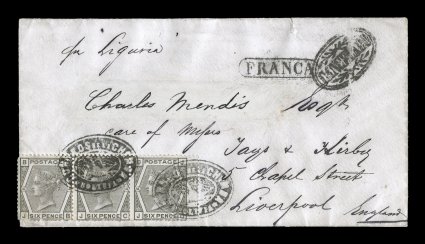 pr Liguria
FRANCA
Charles Mendis Esqr
care of Messrs
Jays & Kirby
5 Chapel Street
Liverpool
England
B POSTAGE
POSTAGE
J SIX PENCE B
J SIX PENCE C
J SIX PENCE